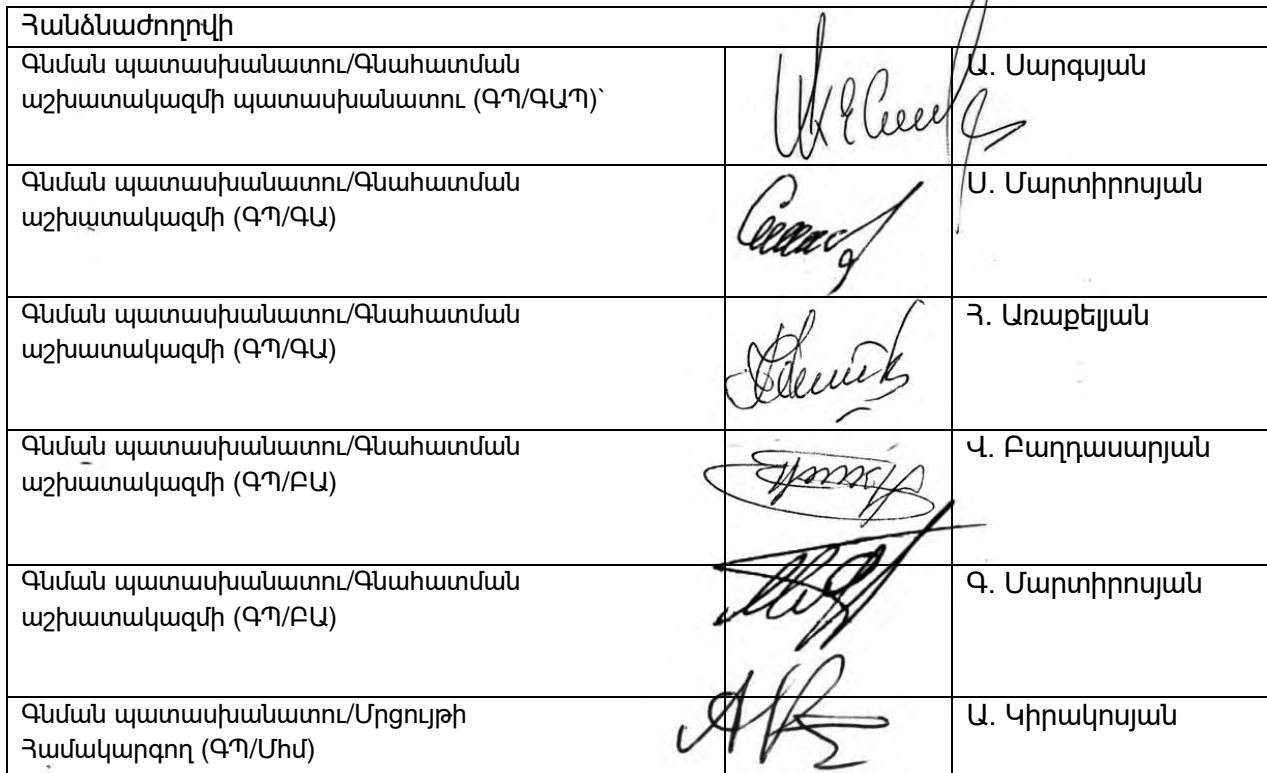 Հանձնաժողովի
Գնման պատասխանատու/Գնահատման
աշխատակազմի պատասխանատու (ԳՊ/ԳԱՊ)՝
Ա. Սարգսյան
Գնման պատասխանատու/Գնահատման
աշխատակազմի (ԳՊ/ԳԱ)
Ս. Մարտիրոսյան
Գնման պատասխանատու/Գնահատման
աշխատակազմի (ԳՊ/ԳԱ)
Հ. Առաքելյան
Գնման պատասխանատու/Գնահատման
աշխատակազմի (ԳՊ/ԲԱ)
Վ. Բաղդասարյան
Գնման պատասխանատու/Գնահատման
աշխատակազմի (ԳՊ/ԲԱ)
Գ. Մարտիրոսյան
Գնման պատասխանատու/Մրցույթի
Համակարգող (ԳՊ/Մհմ)
Ա. Կիրակոսյան